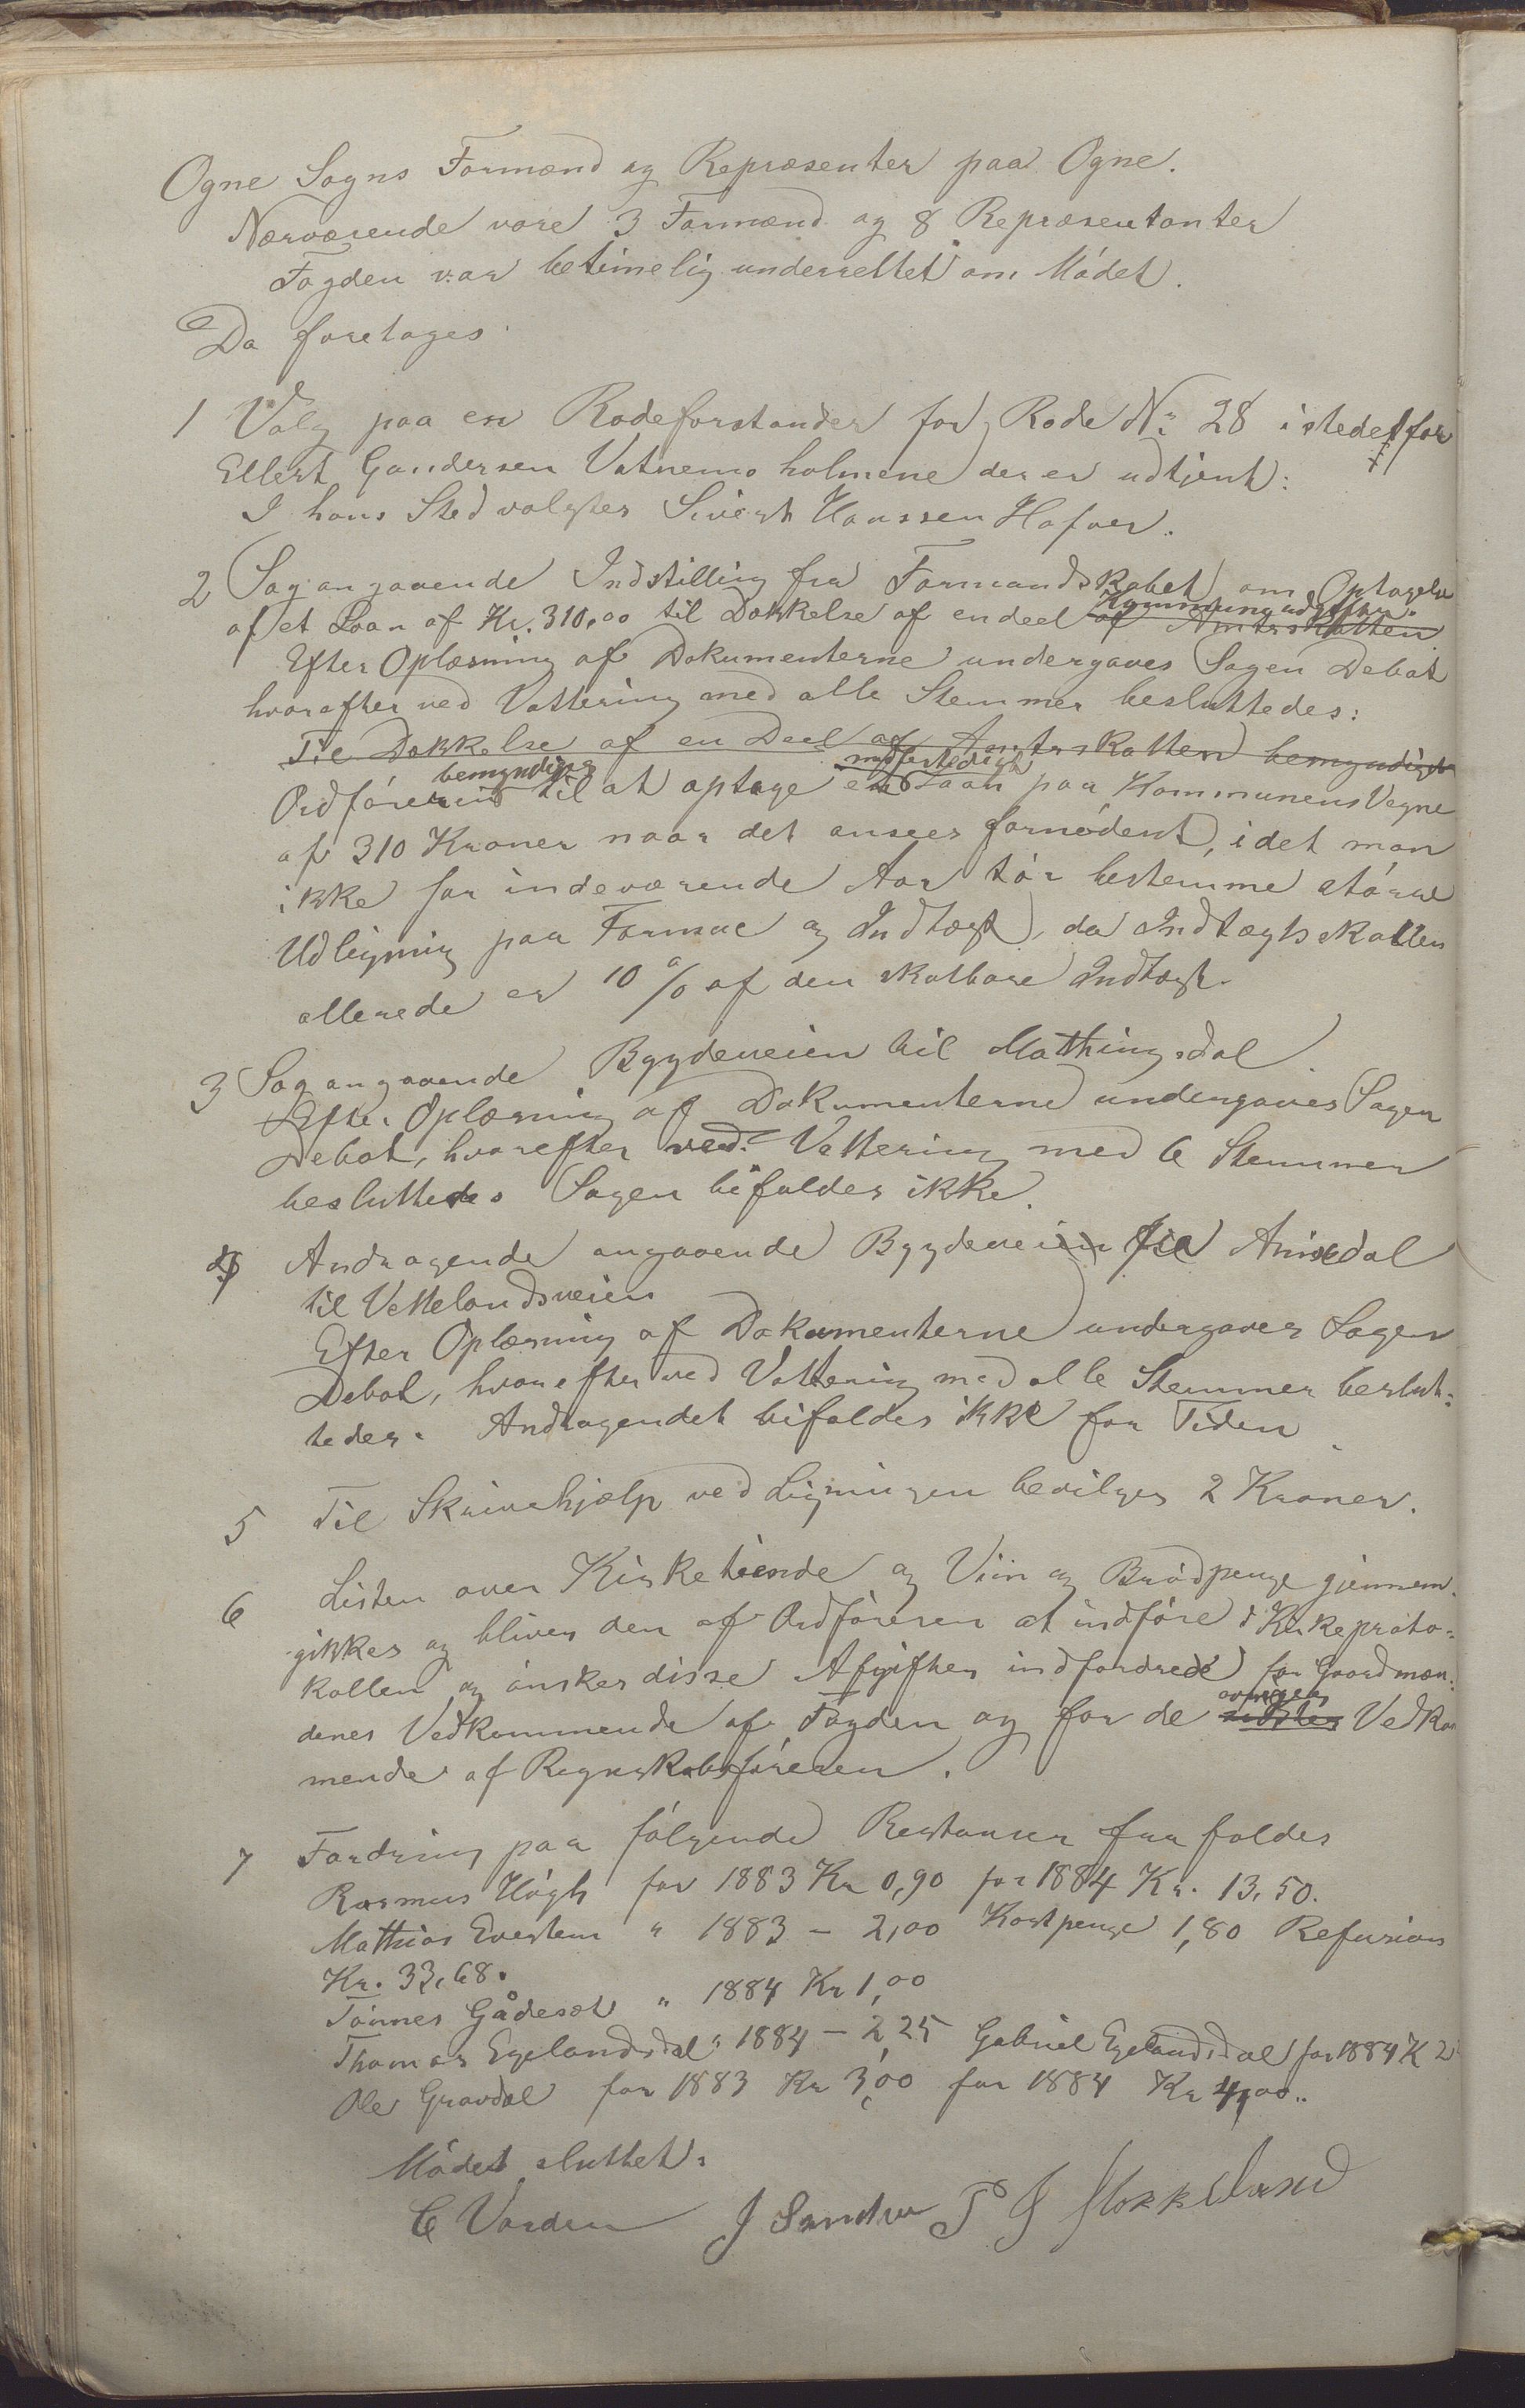 Ogne Sogns Formænd og Repræsenter paa Ogne.
Nærværende vare 3 Formænd og 8 Repræsentanter
Fogden var betimelig underrettet om Mødet.
Da foretages
1 Valg paa en Rodeforstander for Rode No 28 istedetfor
Ellert Gundersen Vatnemo holmene der er udtjent:
I hans Sted valgtes Sivert Hanssen Hafver.
2 Sag angaaende Indstilling fra Formandskabet om Optagelse
af et Laan af Kr. 310,00 til Dækkelse af endeel af Amtsskatten Kommuneudgifter.
Efter Oplæsning af Dokumenterne undergaves Sagen Debat
hvorefter ved Vottering med alle Stemmer besluttedes:
Til Dækkelse af en Deel af Amtsskatten bemyndiges
Ordføreren bemyndiges til at optage et midlertidigt Laan paa Kommunens Vegne
af 310 Kroner naar det ansees fornødent, idet man
ikke for indeværende Aar tør bestemme større
Udligning paa Formue og Indtægt, da Indtægtsskatten
allerede er 10 % af den skatbare Indtægt.
3 Sag angaaende Bygdeveien til Mathingsdal
Efter Oplæsning af Dokumenterne undergaves Sagen
Debat, hvorefter ved Vottering med 6 Stemmer
besluttedes Sagen bifaldes ikke.
4 Andragende angaaende Bygdeveien fra Anisdal
til Vettelandsveien
Efter Oplæsning af Dokumenterne undergaves Sagen
Debat, hvorefter ved Vottering med alle Stemmer beslut-
tedes. Andragendet bifaldes ikke for Tiden
5 Til Skrivehjælp ved Ligningen bevilges 2 Kroner.
6 Listen over Kirketiende og Viin og Brødpenge gjennem-
gikkes og bliver den af Ordføreren at indføre i Kirkeproto-
kollen og ønskes disse Afgifter indfordrede for Gaardmæn-
denes Vedkommende af Fogden og for de øvriges Vedkom
mende af Regnskabsføreren.
7 Fordring paa følgende Restanser frafaldes
Rasmus Høgh for 1883 Kr 0,90 for 1884 Kr. 13,50.
Mathias Evestem " 1883 - 2,00 Kostpenge 1,80 Refusion
Kr. 33,68.
Tønnes Gådesæt " 1884 Kr 1,00
Thomas Egelandsdal " 1884 - 2,25 Gabriel Egelandsdal for 1884 K 2
Ole Gravdal for 1883 Kr 3,00 for 1884 Kr 4,00..
Mødet sluttet.
C Varden J Sandve P J Stokkeland